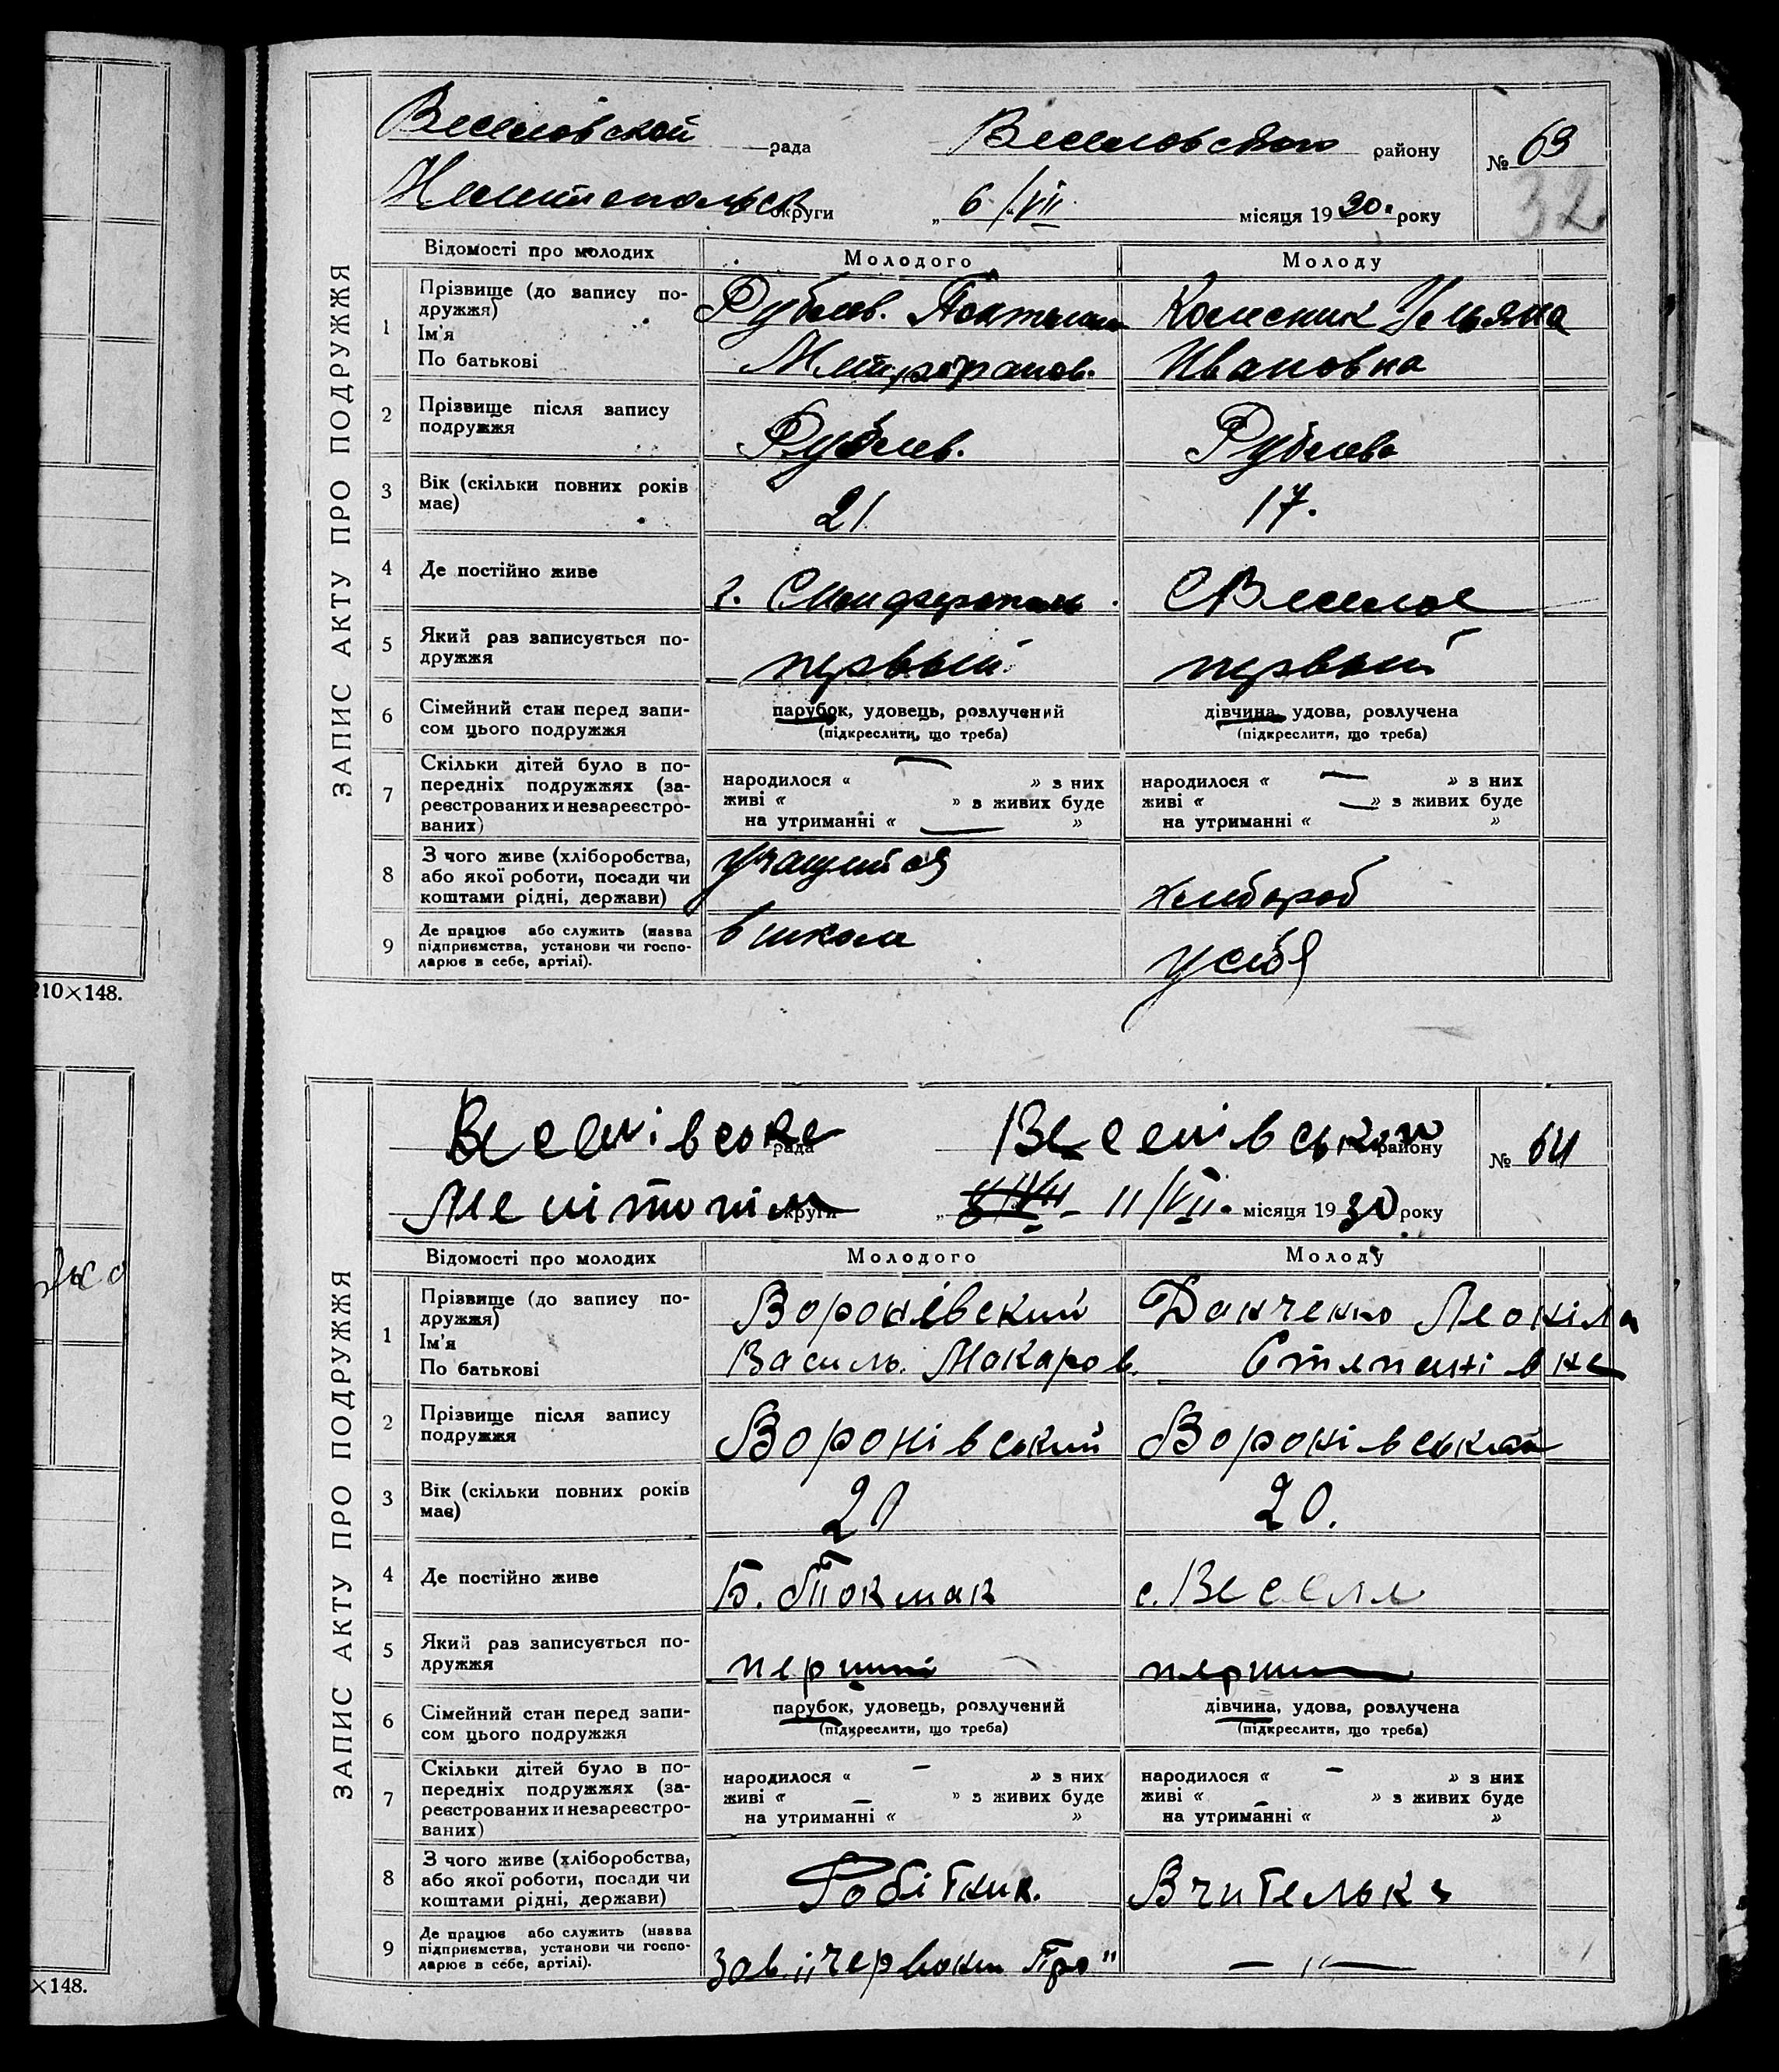 Веселовской рада Веселовского району № 63
32
Мелитопольск округи „ 6/VII місяця 1930. року
ЗАПИС АКТУ ПРО ПОДРУЖЖЯ
Відомості про молодих Молодого Молоду
1 Прізвище (до запису по-
дружжя)
Ім'я
По батькові
Рублев. Колесник Ульяна
Митрофанов. Ивановна
2 Прізвище після запису
подружжя
Рублев. Рублева
3 Вік (скільки повних років
має)
21 17.
4 Де постійно живе г. Симферополь. С Веселое
5 Який раз записується по-
дружжя
первый первый
6 Сімейний стан перед запи-
сом цього подружжя
парубок, удовець, розлучений
(підкреслити, що треба)
дівчина, удова, розлучена
(підкреслити, що треба)
7 Скільки дітей було в по-
передніх подружжях (за-
реєстрованих и незареєстро-
ваних)
народилося « — » з них
живі « » з живих буде
на утриманні « — »
народилося « — » з них
живі « — » з живих буде
на утриманні « »
8 З чого живе (хліборобства,
або якої роботи, посади чи
коштами рідні, держави)
учащийся хлебороб
9 Де працює або служить (назва
підприємства, установи чи госпо-
дарює в себе, артілі).
в школе у себя
210×148.
Веселівське рада Веселівськ району № 64
Мелітопіл округи „ 11/VII. місяця 1930 року
ЗАПИС АКТУ ПРО ПОДРУЖЖЯ
Відомості про молодих Молодого Молоду
1 Прізвище (до запису по-
дружжя)
Ім'я
По батькові
Воронівский Данченко Леоніла
Василь. Макаров. Степанівна
2 Прізвище після запису
подружжя
Воронівський Воронівська
3 Вік (скільки повних років
має)
20 20.
4 Де постійно живе Б. Токмак с. Веселе
5 Який раз записується по-
дружжя
перший перший
6 Сімейний стан перед запи-
сом цього подружжя
парубок, удовець, розлучений
(підкреслити, що треба)
дівчина, удова, розлучена
(підкреслити, що треба)
7 Скільки дітей було в по-
передніх подружжях (за-
реєстрованих и незареєстро-
ваних)
народилося « – » з них
живі « – » з живих буде
на утриманні « »
народилося « – » з них
живі « – » з живих буде
на утриманні « »
8 З чого живе (хліборобства,
або якої роботи, посади чи
коштами рідні, держави)
Робітник. Вчителька
9 Де працює або служить (назва
підприємства, установи чи госпо-
дарює в себе, артілі).
Зав. „Червони Про" — „ —
×148.